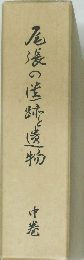 尾張の遺跡と遺物
中巻